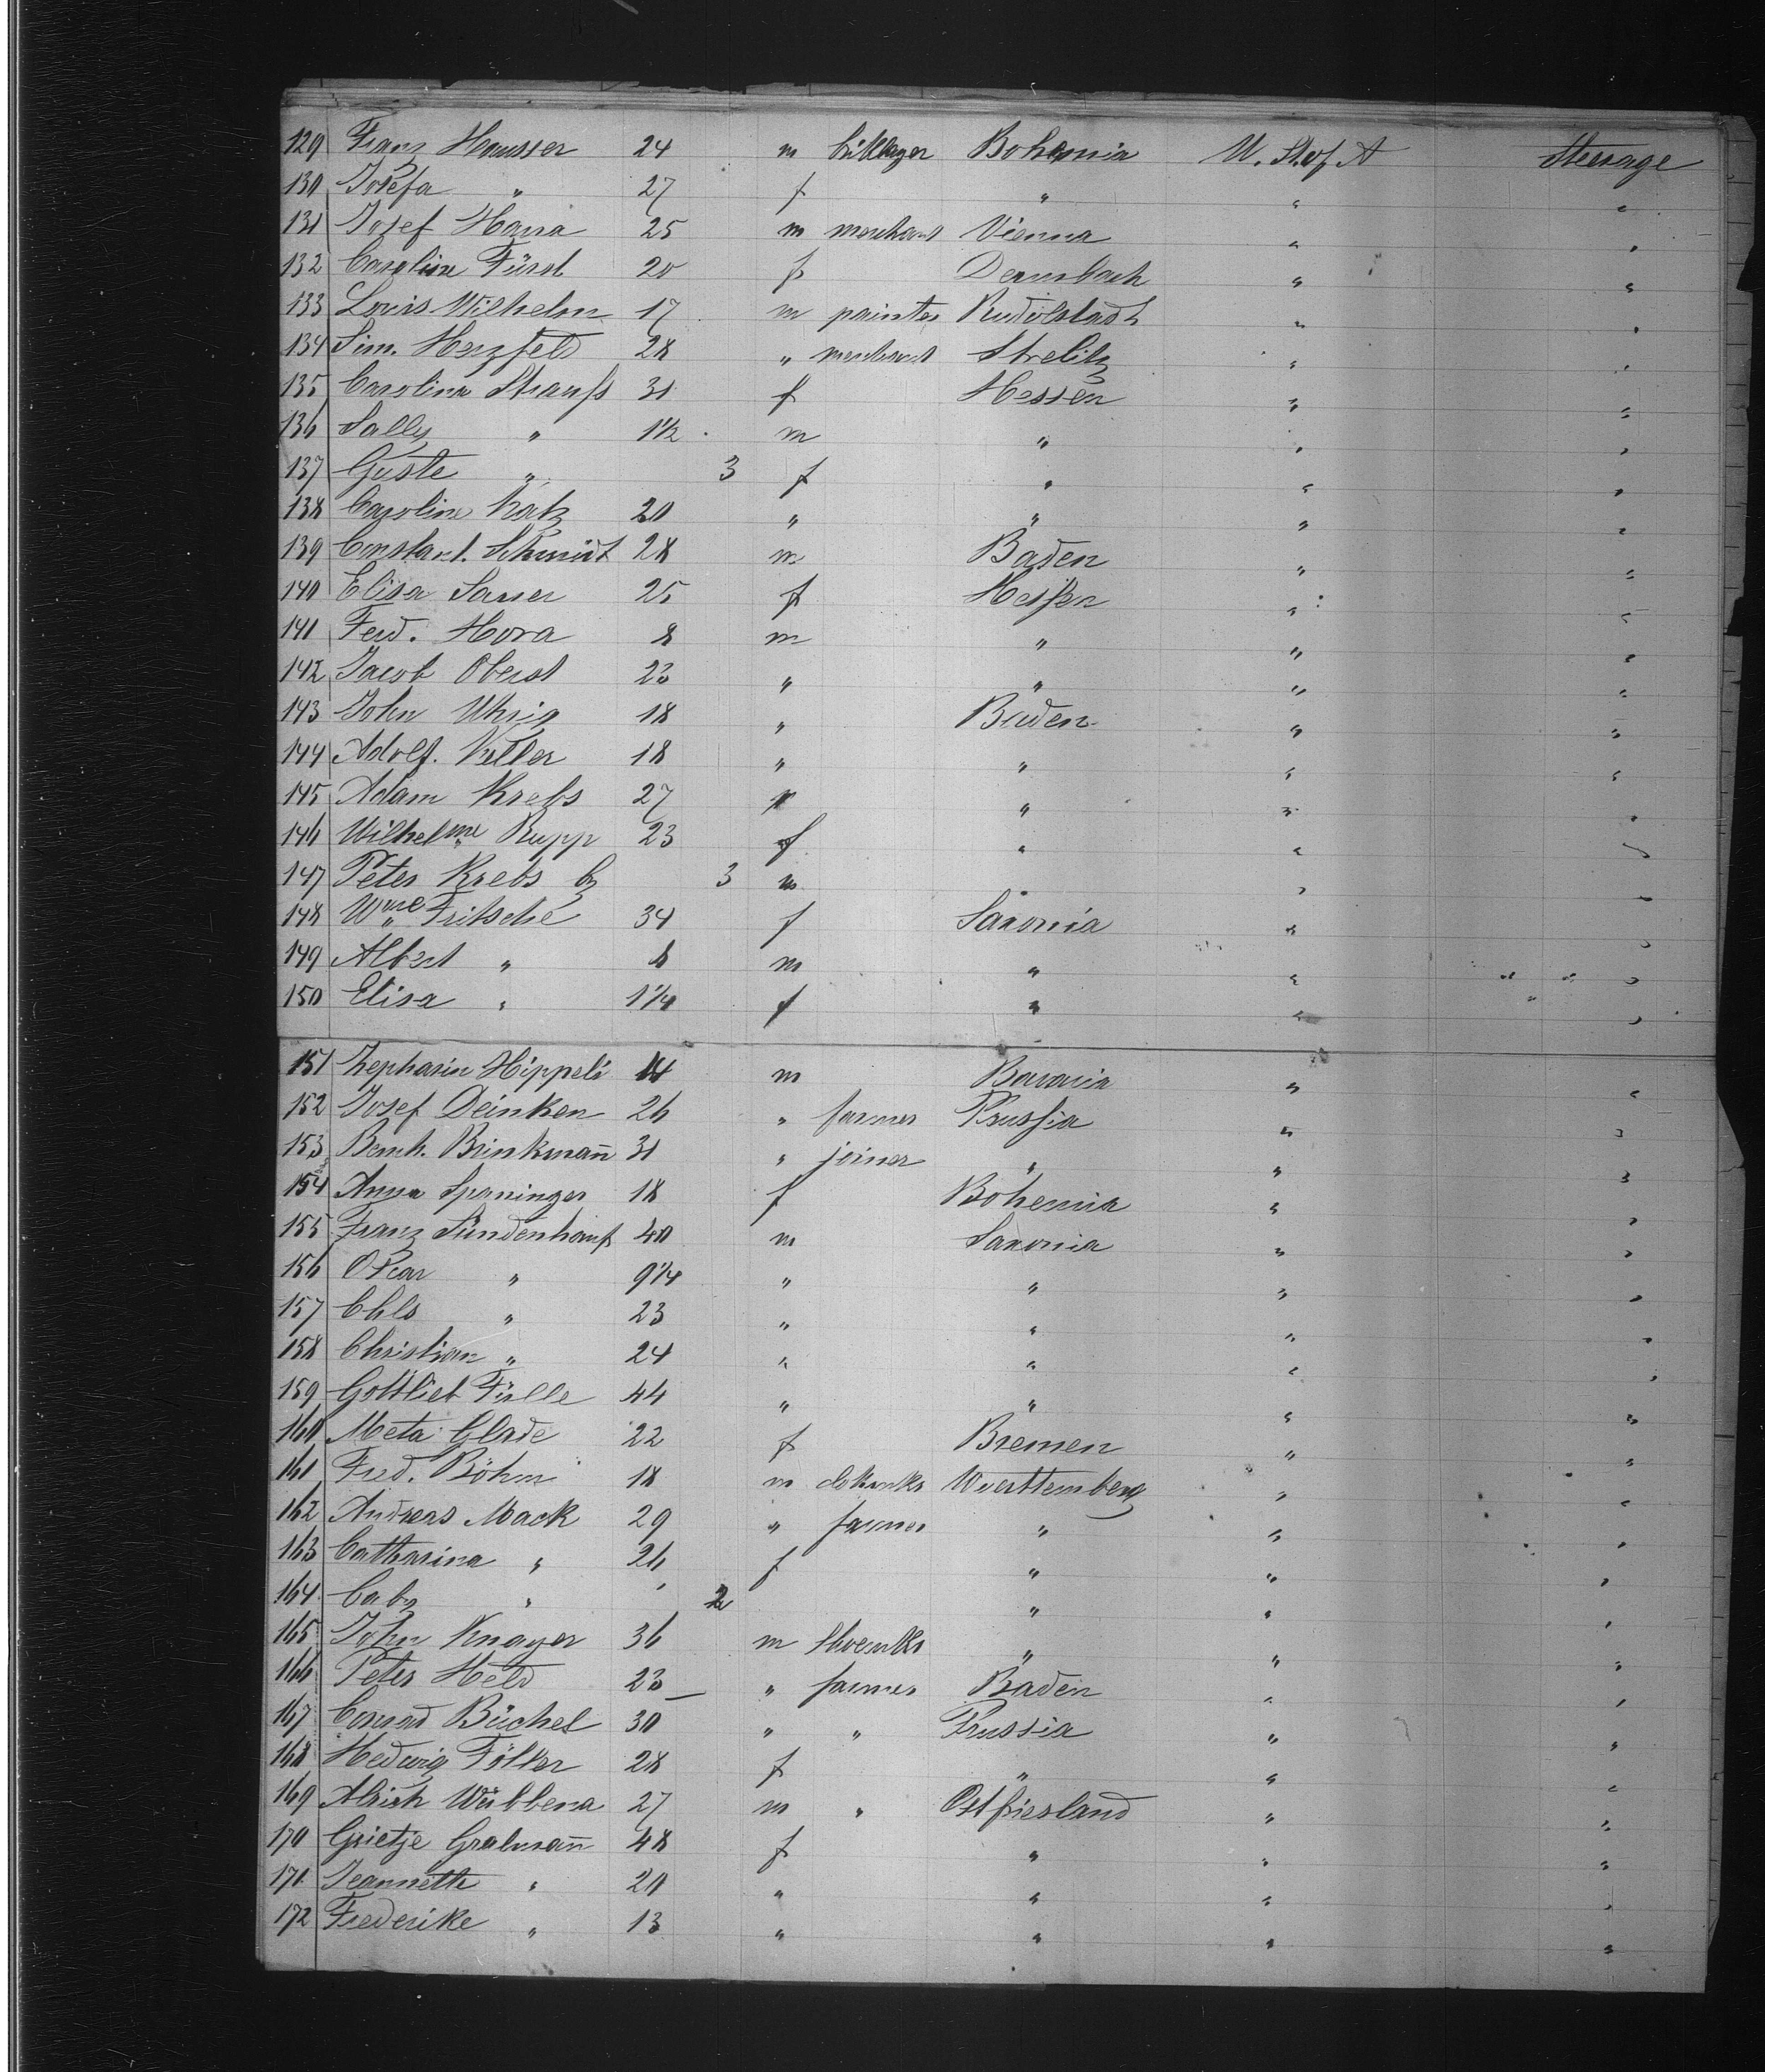 129 Franz Hausser 24 m bricklayer Bohemia U. St. of A Steerage
130 Josefa " 27 f " " "
131 Josef Hana 25 m merchant Vienna " "
132 Caroline Fürst 20 f Dermbach " "
133 Louis Wilhelm 17 m painter Rudolstadt " "
134 Sim. Herzfeld 28 " merchant Strelitz " "
135 Carolina Strauss 31 f Hessen " "
136 Sally " 1½ m " " "
137 Guste " 3 f " " "
138 Caroline Katz 20 " " " "
139 Constant. Schmidt 28 m Baden " "
140 Elisa Sauer 25 f Hessen " "
141 Ferd. Hora 8 m " " "
142 Jacob Oberst 23 " " " "
143 John Uhrig 18 " Baden " "
144 Adolf. Keller 18 " " " "
145 Adam Krebs 27 " " " "
146 Wilhelmne Rupp 23 f " " "
147 Peter Krebs 3 m " " "
148 Wme Fritsche 34 f Saxonia " "
149 Albert " 8 m " " "
150 Elisa " 1¼ f " " "
151 Zepharin Hippeli m Bavaria " "
152 Josef Deinken 26 " farmer Prussia " "
153 Bernh. Brinkmann̄ 31 " joiner " " "
154 Anna Spaninger 18 f Bohemia " "
155 Franz Sündenhauf 40 m Saxonia " "
156 Oscar " 9¼ " " " "
157 Chls " 23 " " " "
158 Christian " 24 " " " "
159 Gottlieb Fülle 44 " " " "
160 Meta Glade 22 f Bremen " "
161 Fred. Böhm 18 m Wuerttemberg " "
162 Andreas Mack 29 " farmer " " "
163 Catharina " 26 f " " "
164 " 2 " " "
165 John Knayer 36 m shoemkr " " "
166 Peter Held 23 " farmer Baden " "
167 Conrad Büchel 30 " " Prussia " "
168 Hedwig Fölker 28 f " " "
169 Alrich Wübbena 27 m " Ostfriesland " "
170 Grietje Gralmann̄ 48 f " " "
171 Jeannette " 20 " " " "
172 Frederike " 13 " " " "